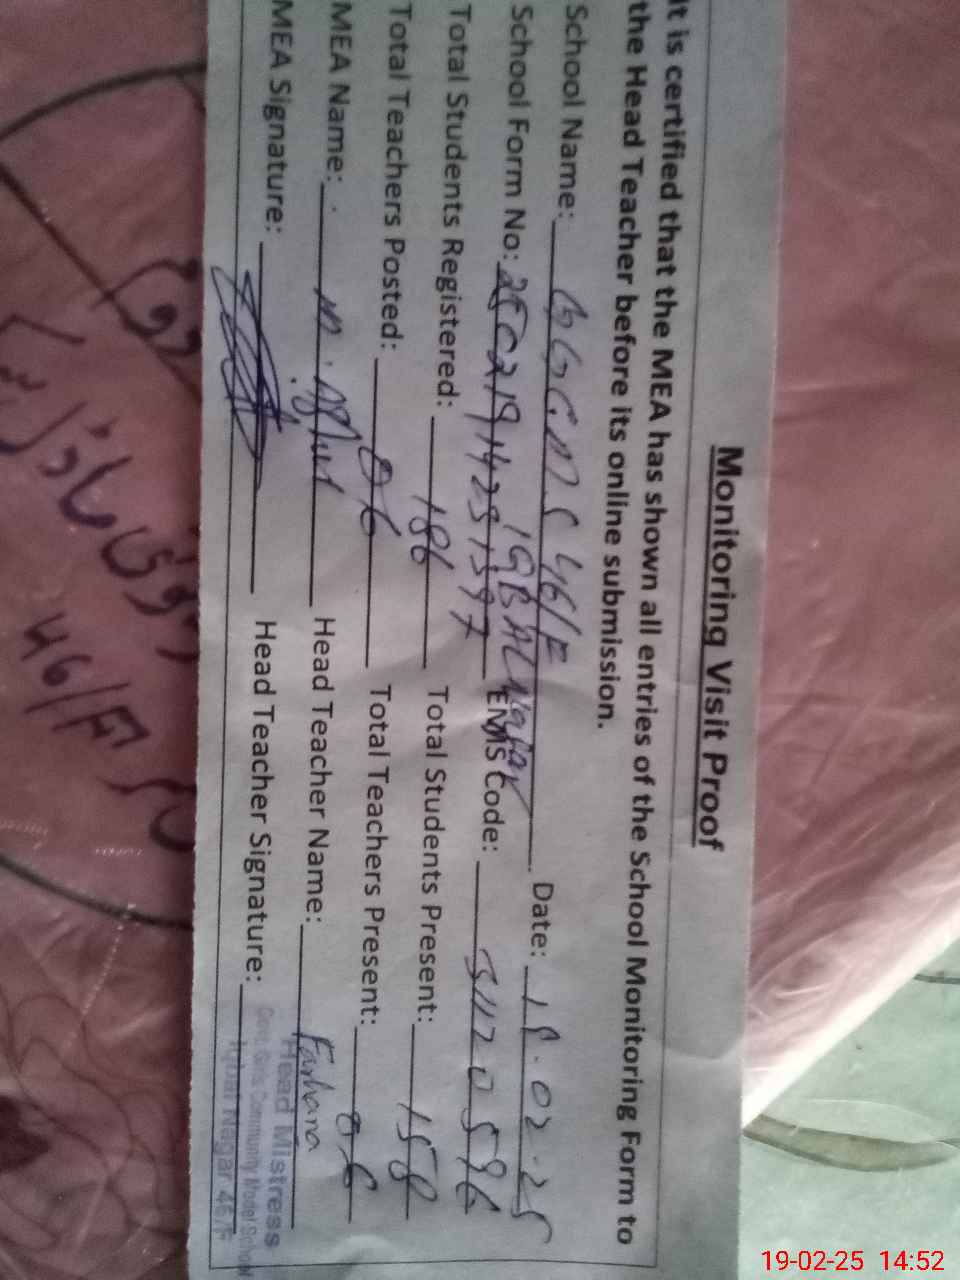 Monitoring Visit Proof
It is certified that the MEA has shown all entries of the School Monitoring Form to
the Head Teacher before its online submission.
School Name: GGCMS 46/F IQBAL Nagar Date: 18.02.25
School Form No: EMIS Code: 31120596
Total Students Registered: 186 Total Students Present: 158
Total Teachers Posted: 06 Total Teachers Present: 06
MEA Name: Head Teacher Name: Farhana
MEA Signature: Head Teacher Signature:
Head Mistress
Govt. Girls Community Model School
Iqbal Nagar 46/F
46/F
19-02-25 14:52